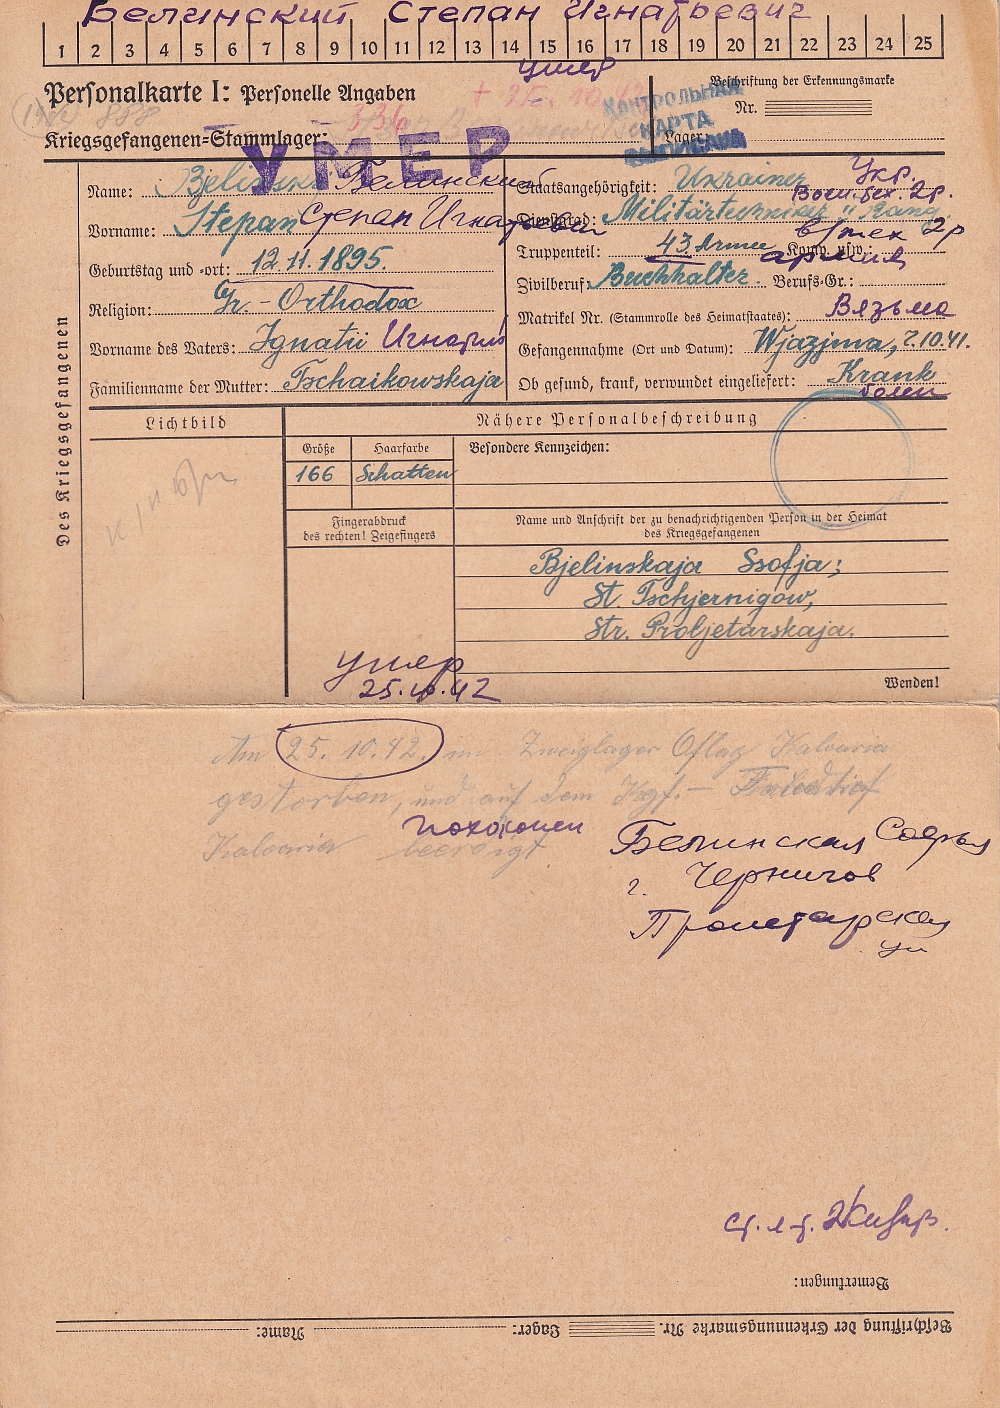 Белинский Степан Игнатьевич
1 2 3 4 5 6 7 8 9 10 11 12 13 14 15 16 17 18 19 20 21 22 23 24 25
умер
Personalkarte I: Personelle Angaben
+ 25. 10. 42
Beschriftung der Erkennungsmarke
Nr.
336
КОНТРОЛЬНАЯ
КАРТА
Kriegsgefangenen-Stammlager:
Lager:
УМЕР
Des Kriegsgefangenen
Name: Bjelinski Белинский
Vorname: Stepan Степан Игнатьевич
Geburtstag und -ort: 12.11.1895.
Religion: Gr.-Orthodox
Vorname des Vaters: Ignatii Игнатий
Familienname der Mutter: Tschaikowskaja
Staatsangehörigkeit: Ukrainer Укр.
Воен.тех. 2р.
Dienstgrad: Militärtechniker II Rang
в/тех 2р
Truppenteil: 43. Armee Komp. usw.:
армия
Zivilberuf: Buchhalter. Berufs-Gr.:
Matrikel Nr. (Stammrolle des Heimatstaates): Вязьма
Gefangennahme (Ort und Datum): Wjazjma, 7.10.41.
Ob gesund, krank, verwundet eingeliefert: Krank
болен
Lichtbild
Nähere Personalbeschreibung
Größe Haarfarbe Besondere Kennzeichen:
166 Schatten
Fingerabdruck
des rechten! Zeigefingers
Name und Anschrift der zu benachrichtigenden Person in der Heimat
des Kriegsgefangenen
Bjelinskaja Ssofja;
St. Tschjernigow,
Str. Proljetarskaja.
умер
25.10.42
Wenden!
Am 25. 10. 42. im Zweiglager Oflag Kalvaria
gestorben, und auf dem Kgf.- Friedhof
похоронен
Kalvaria beerdigt.
Белинская Софья
г. Чернигов
Пролетарская
ул
ст. л-т.
Bemerkungen:
Beschriftung der Erkennungsmarke Nr. Lager: Name: